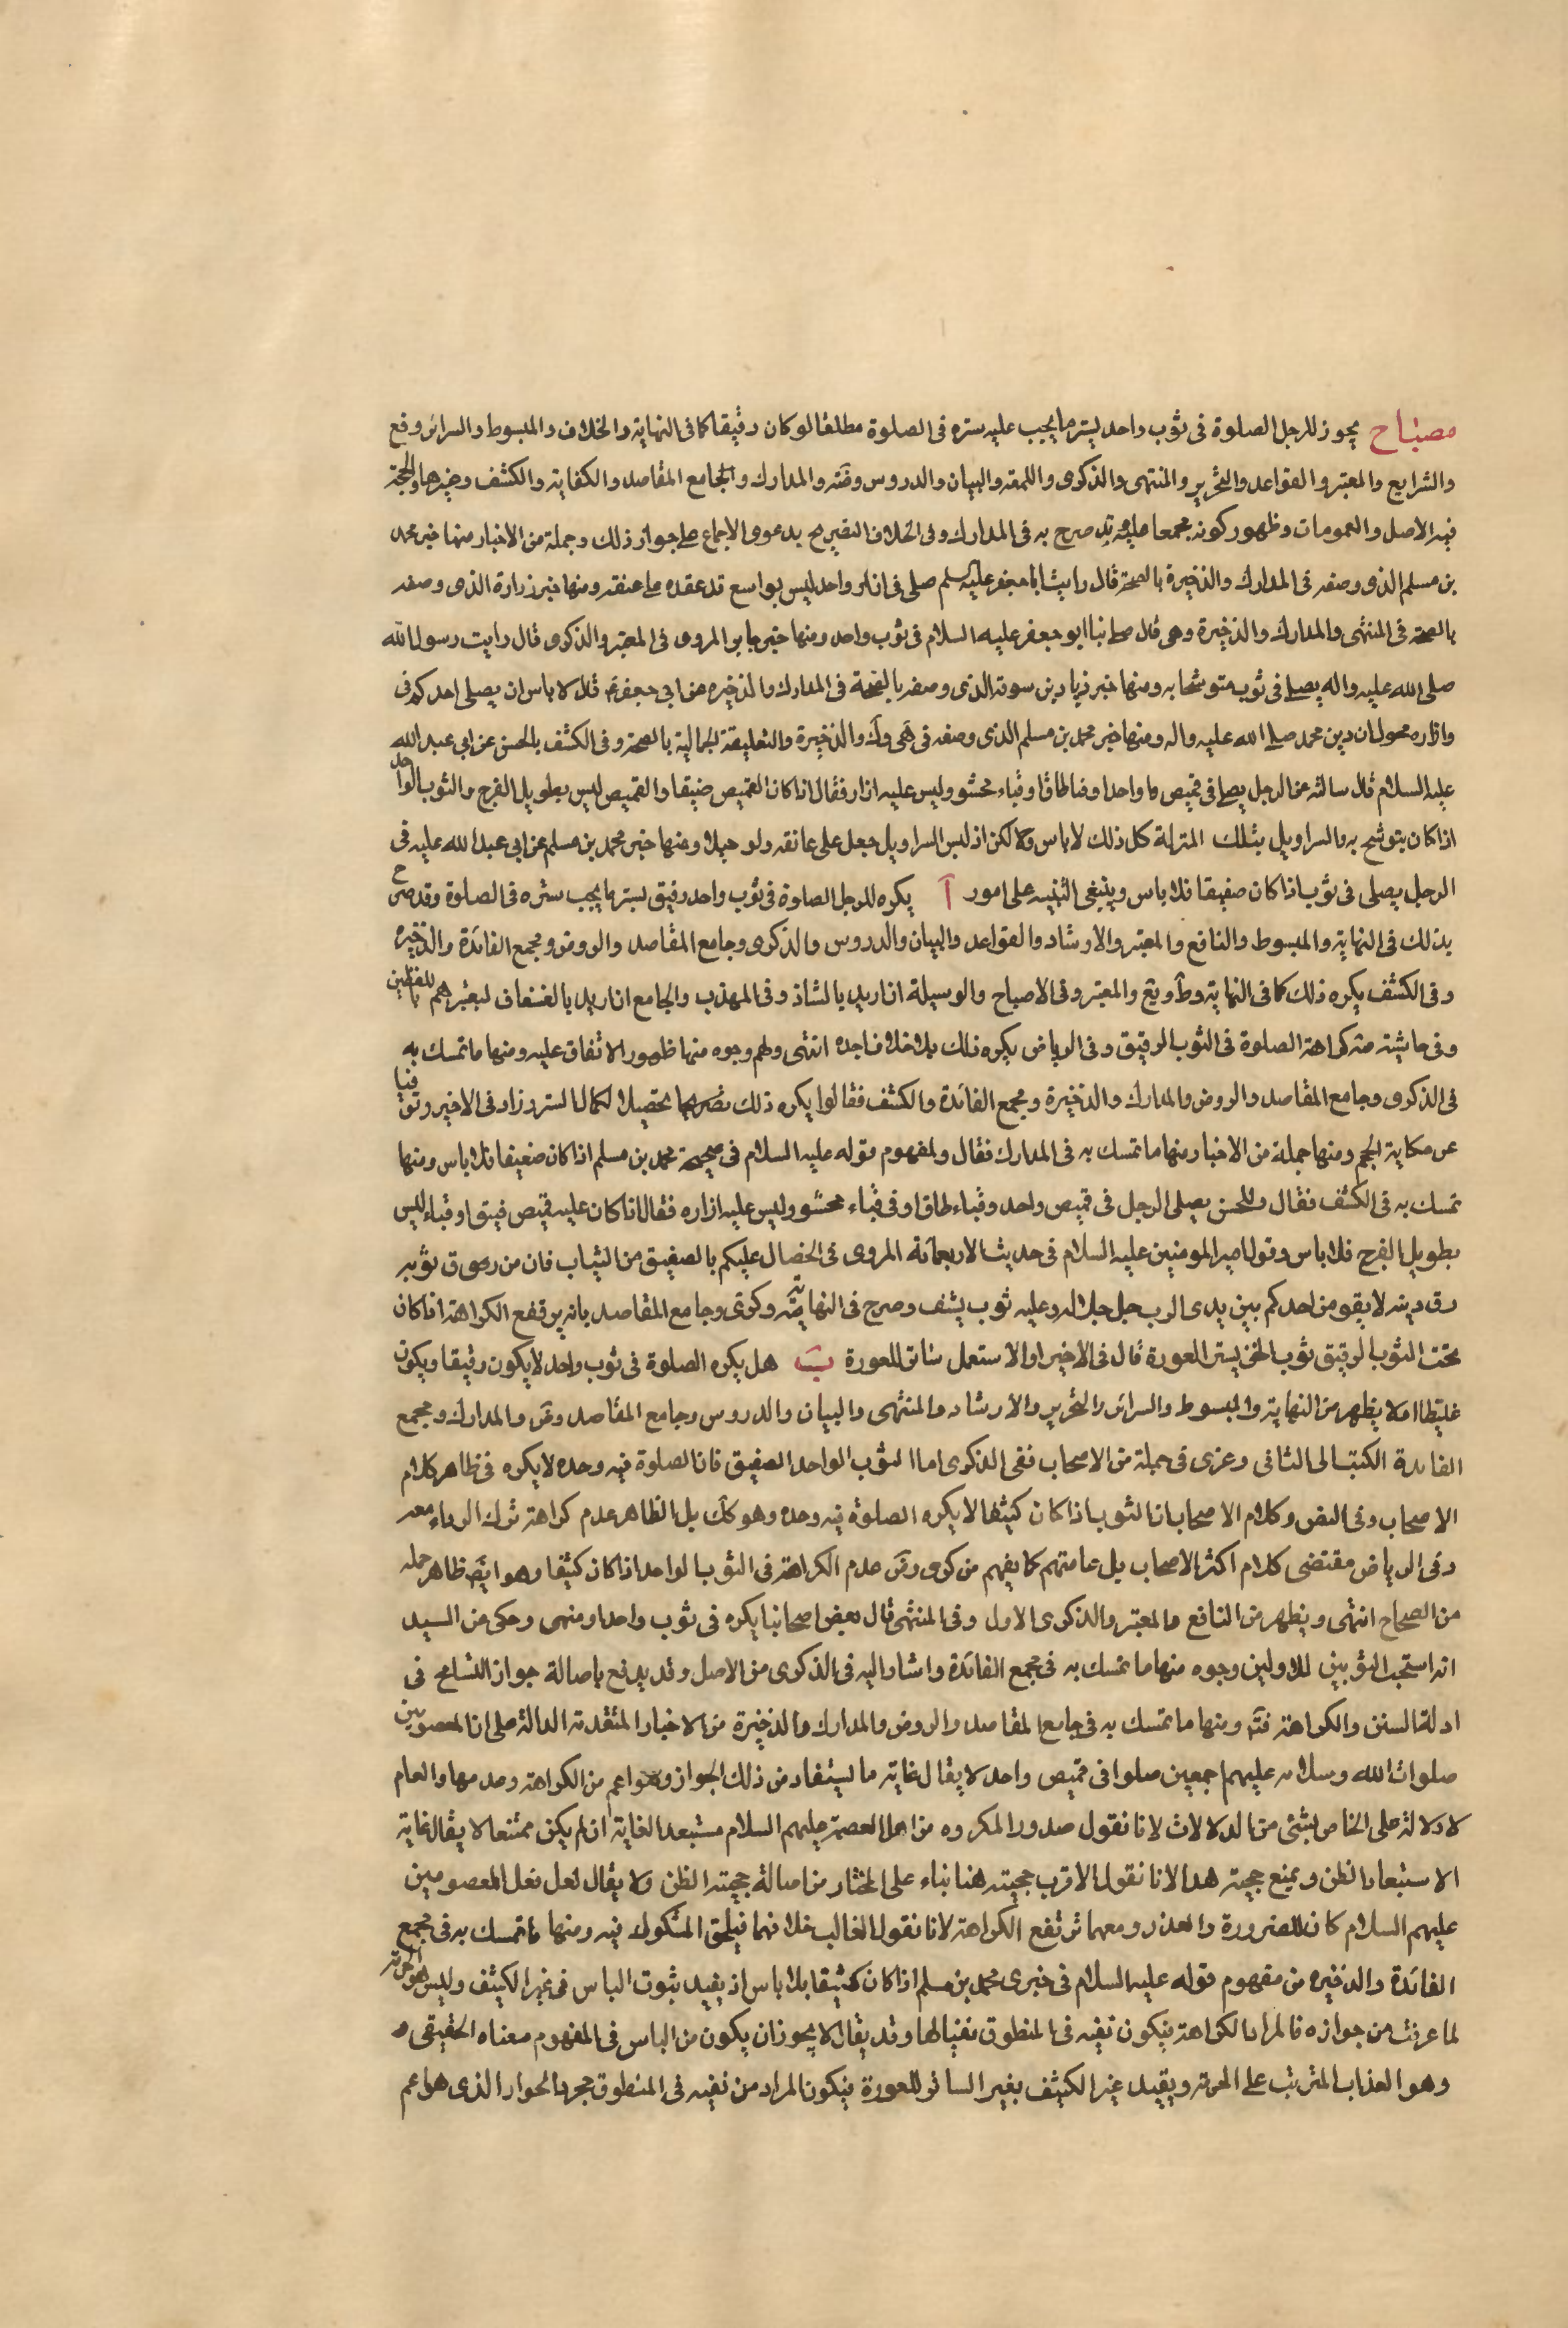 مصباح يجوز للرجل الصلوة فى ثوب واحد يستر ما يجب عليه ستره فى الصلوة مطلقا لو كان رقيقا كما فى النهاية والخلاف والمبسوط والسرائر وقع
والشرايع والمعتبر والقواعد والتحرير والمنتهى والذكرى واللمعة والبيان والدروس وضه والمدارك والجامع المقاصد والكفاية والكشف وغيرها والحجة
فيه الاصل والعمومات وظهور كونه مجمعا عليه وقد صرح به فى المدارك وفى الخلاف التصريح بدعوى الاجماع على جواز ذلك وجملة من الاخبار منها خبر محمد
بن مسلم الذى وصفه فى المدارك والذخيرة بالصحة قال رايت ابا جعفر عليه السلم صلى فى ازار واحد ليس بواسع قد عقده على عنقه ومنها خبر زرارة الذى وصفه
بالصحة فى المنتهى والمدارك والذخيرة وهى قال صلى بنا ابو جعفر عليه السلام فى ثوب واحد ومنها خبر جابر المروى فى المعتبر والذكرى قال رايت رسول الله
صلى الله عليه واله يصلى فى ثوب متوشحا به ومنها خبر زياد بن سوقة الذى وصفه بالصحة فى المدارك والذخيره عن ابى جعفر ع قال لا باس ان يصلى احدكم فى
وازاره محلول ان دين محمد صلى الله عليه واله ومنها خبر محمد بن مسلم الذى وصفه فى هى وك والذخيرة والتعليقة الجمالية بالصحة وفى الكشف بالحسن عن ابى عبد الله
عليه السلام قال سالته عن الرجل يصلى فى قميص واحد او قبا طاق او قباء محشو وليس عليه ازار فقال اذا كان القميص ضيقا والقميص ليس بطويل الفرج والثوب الواحد
اذا كان يتوشح به والسراويل بتلك المنزلة كل ذلك لا باس به ولكن اذ لبس السراويل جعل على عاتقه ولو حبلا ومنها خبر محمد بن مسلم عن ابى عبد الله عليه فى
الرجل يصلى فى ثوب اذا كان صفيقا فلا باس وينبغى التنبيه على امور آ يكره للرجل الصلوة فى ثوب واحد رقيق يستر ما يجب ستره فى الصلوة وقد صرح
بذلك فى النهاية والمبسوط والنافع والمعتبر والارشاد والقواعد والبيان والدروس والذكرى وجامع المقاصد والروض ومجمع الفائدة والذخيره
وفى الكشف يكره ذلك كما فى النهاية وط ويع والمعتبر وفى الاصباح والوسيلة ان اريد بالشاذ وفى المهذب والجامع ان اريد بالشفاف لتعبيرهم باللفظين
وفى حاشيته مته كراهة الصلوة فى الثوب الرقيق وفى الرياض يكره ذلك بلا خلاف اجده انتهى ولهم وجوه منها ظهور الاتفاق عليه ومنها ما تمسك به
فى الذكرى وجامع المقاصد والروض والمدارك والذخيرة ومجمع الفائدة والكشف فقالوا يكره ذلك تحصيلا لكمال الستر وزاد فى الاخير وتوقيا
عن حكاية الحجم ومنها جملة من الاخبار منها ما تمسك به فى المدارك فقال ولمفهوم قوله عليه السلام فى صحيحة محمد بن مسلم اذا كان صفيقا فلا باس ومنها
تمسك به فى الكشف فقال وللحسن يصلى الرجل فى قميص واحد وقباء طاق او فى قباء محشو وليس عليه ازاره فقال اذا كان عليه قميص صفيق او قباء ليس
بطويل الفرج فلا باس وقول امير المومنين عليه السلام فى حديث الاربعمائة المروى فى الخصال عليكم بالصفيق من الثياب فان من رق ثوبه
رق دينه لا يقومن احدكم بين يدى الرب جل جلاله وعليه ثوب يشف وصرح فى النهاية وكرى وجامع المقاصد بانه يرتفع الكراهة اذا كان
تحت الثوب الرقيق ثوب اخر يستر العورة قال فى الاخير او الاستعمل ساتر للعورة ب هل يكره الصلوة فى ثوب واحد لا يكون رقيقا ويكون
غليظا ام لا يظهر من النهاية والمبسوط والسرائر والتحرير والارشاد والمنتهى والبيان والدروس وجامع المقاصد وض والمدارك ومجمع
الفائدة الكتب الى الثانى وعزى فى جملة من الاصحاب ففى الذكرى اما الثوب الواحد الصفيق فان الصلوة فيه وحده لا يكره فى ظاهر كلام
الاصحاب وفى النص وكلام الاصحاب ان الثوب اذا كان كثيفا لا يكره الصلوة فيه وحده وهو كك بل الظاهر عدم كراهة ترك الرداء معه
وفى الرياض مقتضى كلام اكثر الاصحاب بل عامتهم كما يفهم من كرى وض عدم الكراهة فى الثوب الواحد اذا كان كثيفا وهو ايض ظاهر جملة
من الصحاح انتهى ويظهر من النافع والمعتبر والذكرى الاول وفى المنتهى قال بعض اصحابنا يكره فى ثوب واحد او منهى وحكى عن السيد
انه استحب الثوبين للاولين وجوه منها ما تمسك به فى مجمع الفائدة واشار اليه فى الذكرى من الاصل وقد يدفع باصالة جواز التسامح فى
ادلة السنن والكراهة فته ومنها ما تمسك به فى جامع المقاصد والروض والمدارك والذخيرة من الاخبار المتقدمة الدالة على ان المعصومين
صلوات الله وسلامه عليهم اجمعين صلوا فى قميص واحد لا يقال غاية ما يستفاد من ذلك الجواز وهو اعم من الكراهة وعدمها والعام
لا دلالة على الخاص بشئ من الدلالات لانا نقول صدور المكروه من اهل العصمة عليهم السلام مستبعد الغاية ان لم يكن ممتنعا لا يقال غاية
الاستبعاد الظن ويمنع حجيته هذا لانا نقول الاقرب حجيته هنا بناء على المختار من اصالة حجية الظن ولا يقال لعل فعل المعصومين
عليهم السلام كان للضرورة والعذر ومعهما ترتفع الكراهة لانا نقول الغالب خلافهما فيلحق المشكوك فيه ومنها ما تمسك به فى مجمع
الفائدة والذخيره من مفهوم قوله عليه السلام فى خبرى محمد بن مسلم اذا كان كثيفا فلا باس اذ يفيد ثبوت الباس فى غير الكثيف وليس هو الحرمة
لما عرفت من جوازه فالمراد الكراهة فيكون نفيه فى المنطوق نفيا لها وقد يقال لا يجوز ان يكون من الباس فى المفهوم معناه الحقيقى
وهو العذاب المترتب على الحرمة ويقيد غير الكثيف بغير الساتر للعورة فيكون المراد من نفيه فى المنطوق مجرد الجواز الذى هو اعم